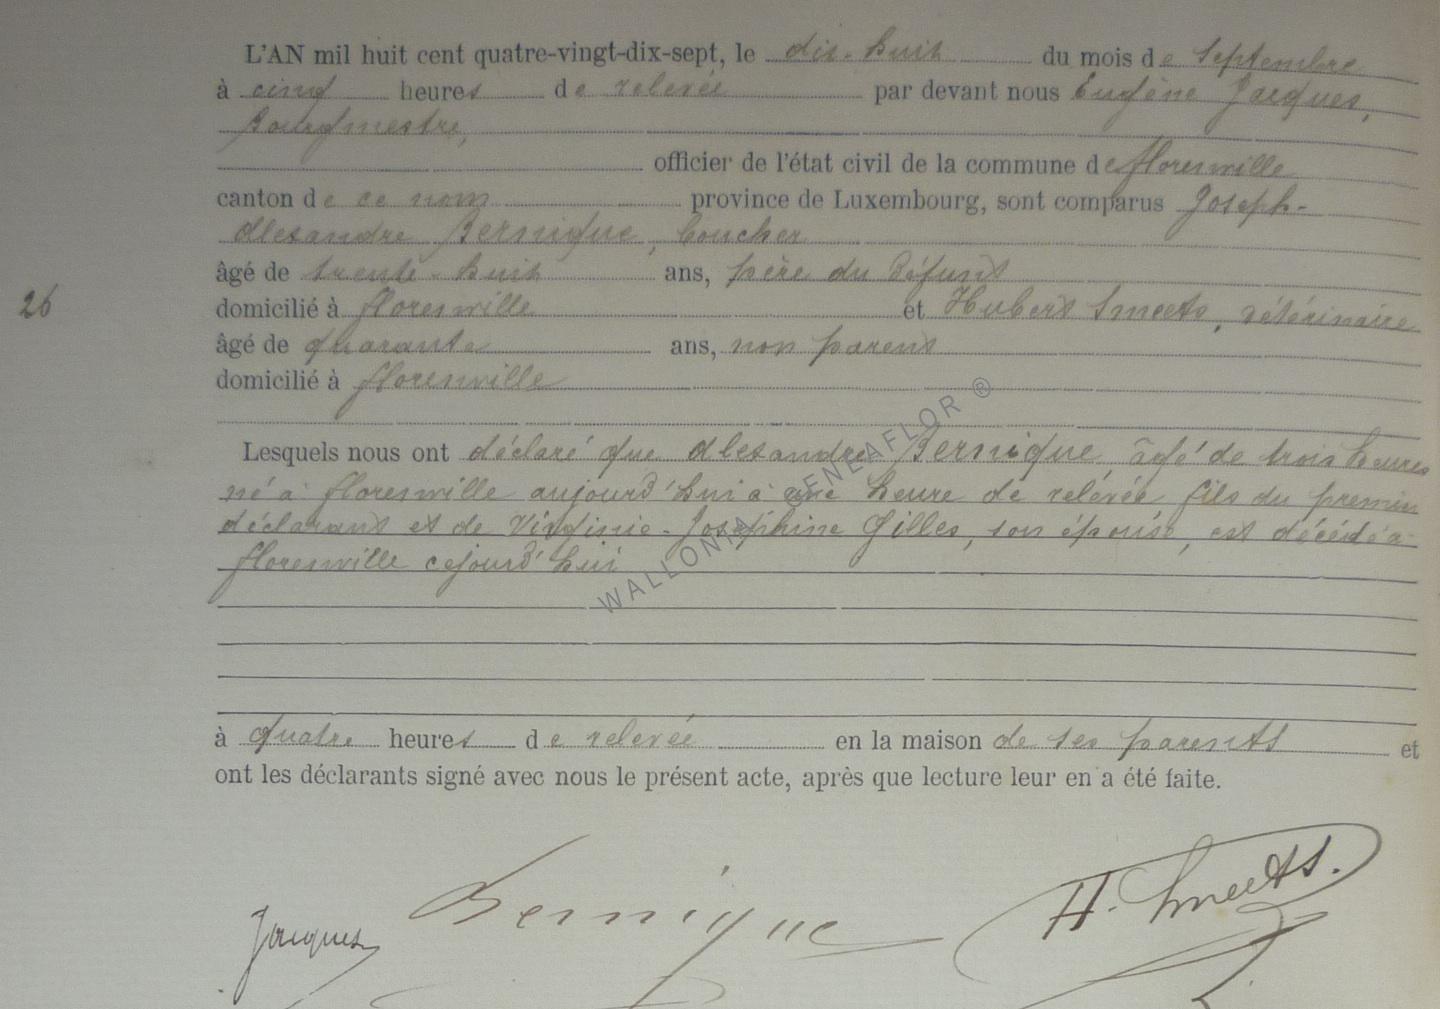 L'AN mil huit cent quatre-vingt-dix-sept, le dix-huit du mois de septembre
à cinq heures de relevée par devant nous Eugène Jacques,
Bourgmestre,
officier de l'état civil de la commune de florenville
canton de ce nom province de Luxembourg, sont comparus Joseph-
Alexandre Bernique, boucher
âgé de trente-huit ans, père du défunt
26
domicilié à florenville et Hubert Smeets, vétérinaire
âgé de quarante ans, non parent
domicilié à florenville
Lesquels nous ont déclaré que Alexandre Bernique, âgé de trois heures
né à florenville aujourd'hui à une heure de relévée fils du premier
déclarant et de Virginie-Joséphine Gilles, son épouse, est décédé à
florenville cejourd'hui
WALLONIA GENEAFLOR ®
à quatre heures de relevée en la maison de ses parents et
ont les déclarants signé avec nous le présent acte, après que lecture leur en a été faite.
Jacques Bernique H. Smeets.